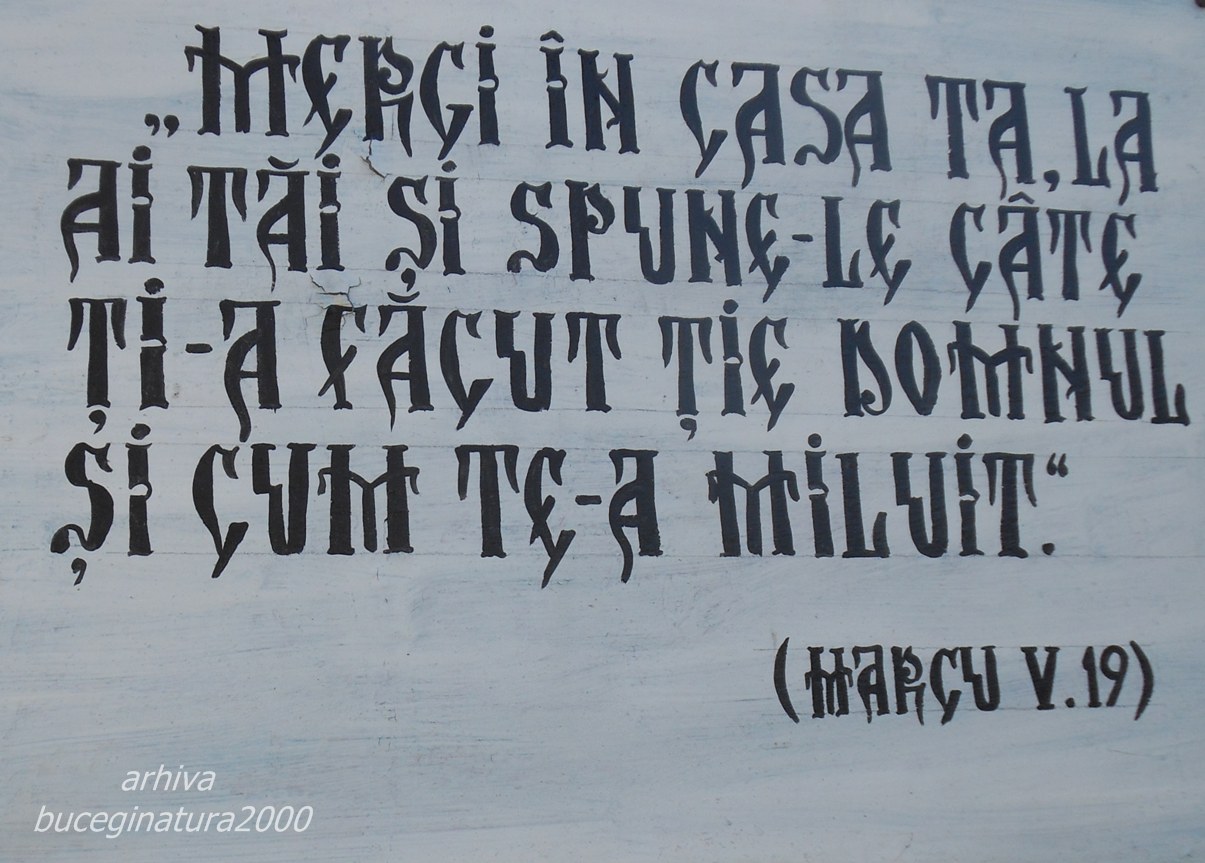 „MERGI ÎN CASA TA, LA
AI TĂI ȘI SPUNE-LE CÂTE
ȚI-A FĂCUT ȚIE DOMNUL
ȘI CUM TE-A MILUIT.“
(MARCU V.19)
arhiva
buceginatura2000